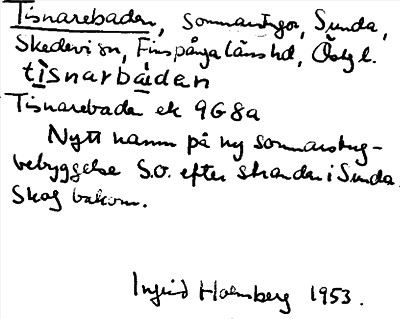 Tisnarebaden, sommarstugor, Sunda,
Skedevi sn, Finspånga läns hd, Östgl.
tisnarbáden
Tisnarebaden ek 9G8a
Nytt namn på ny sommarstug-
bebyggelse S.O. efter stranden i Sunda.
Skog bakom.
Ingrid Holmberg 1953.